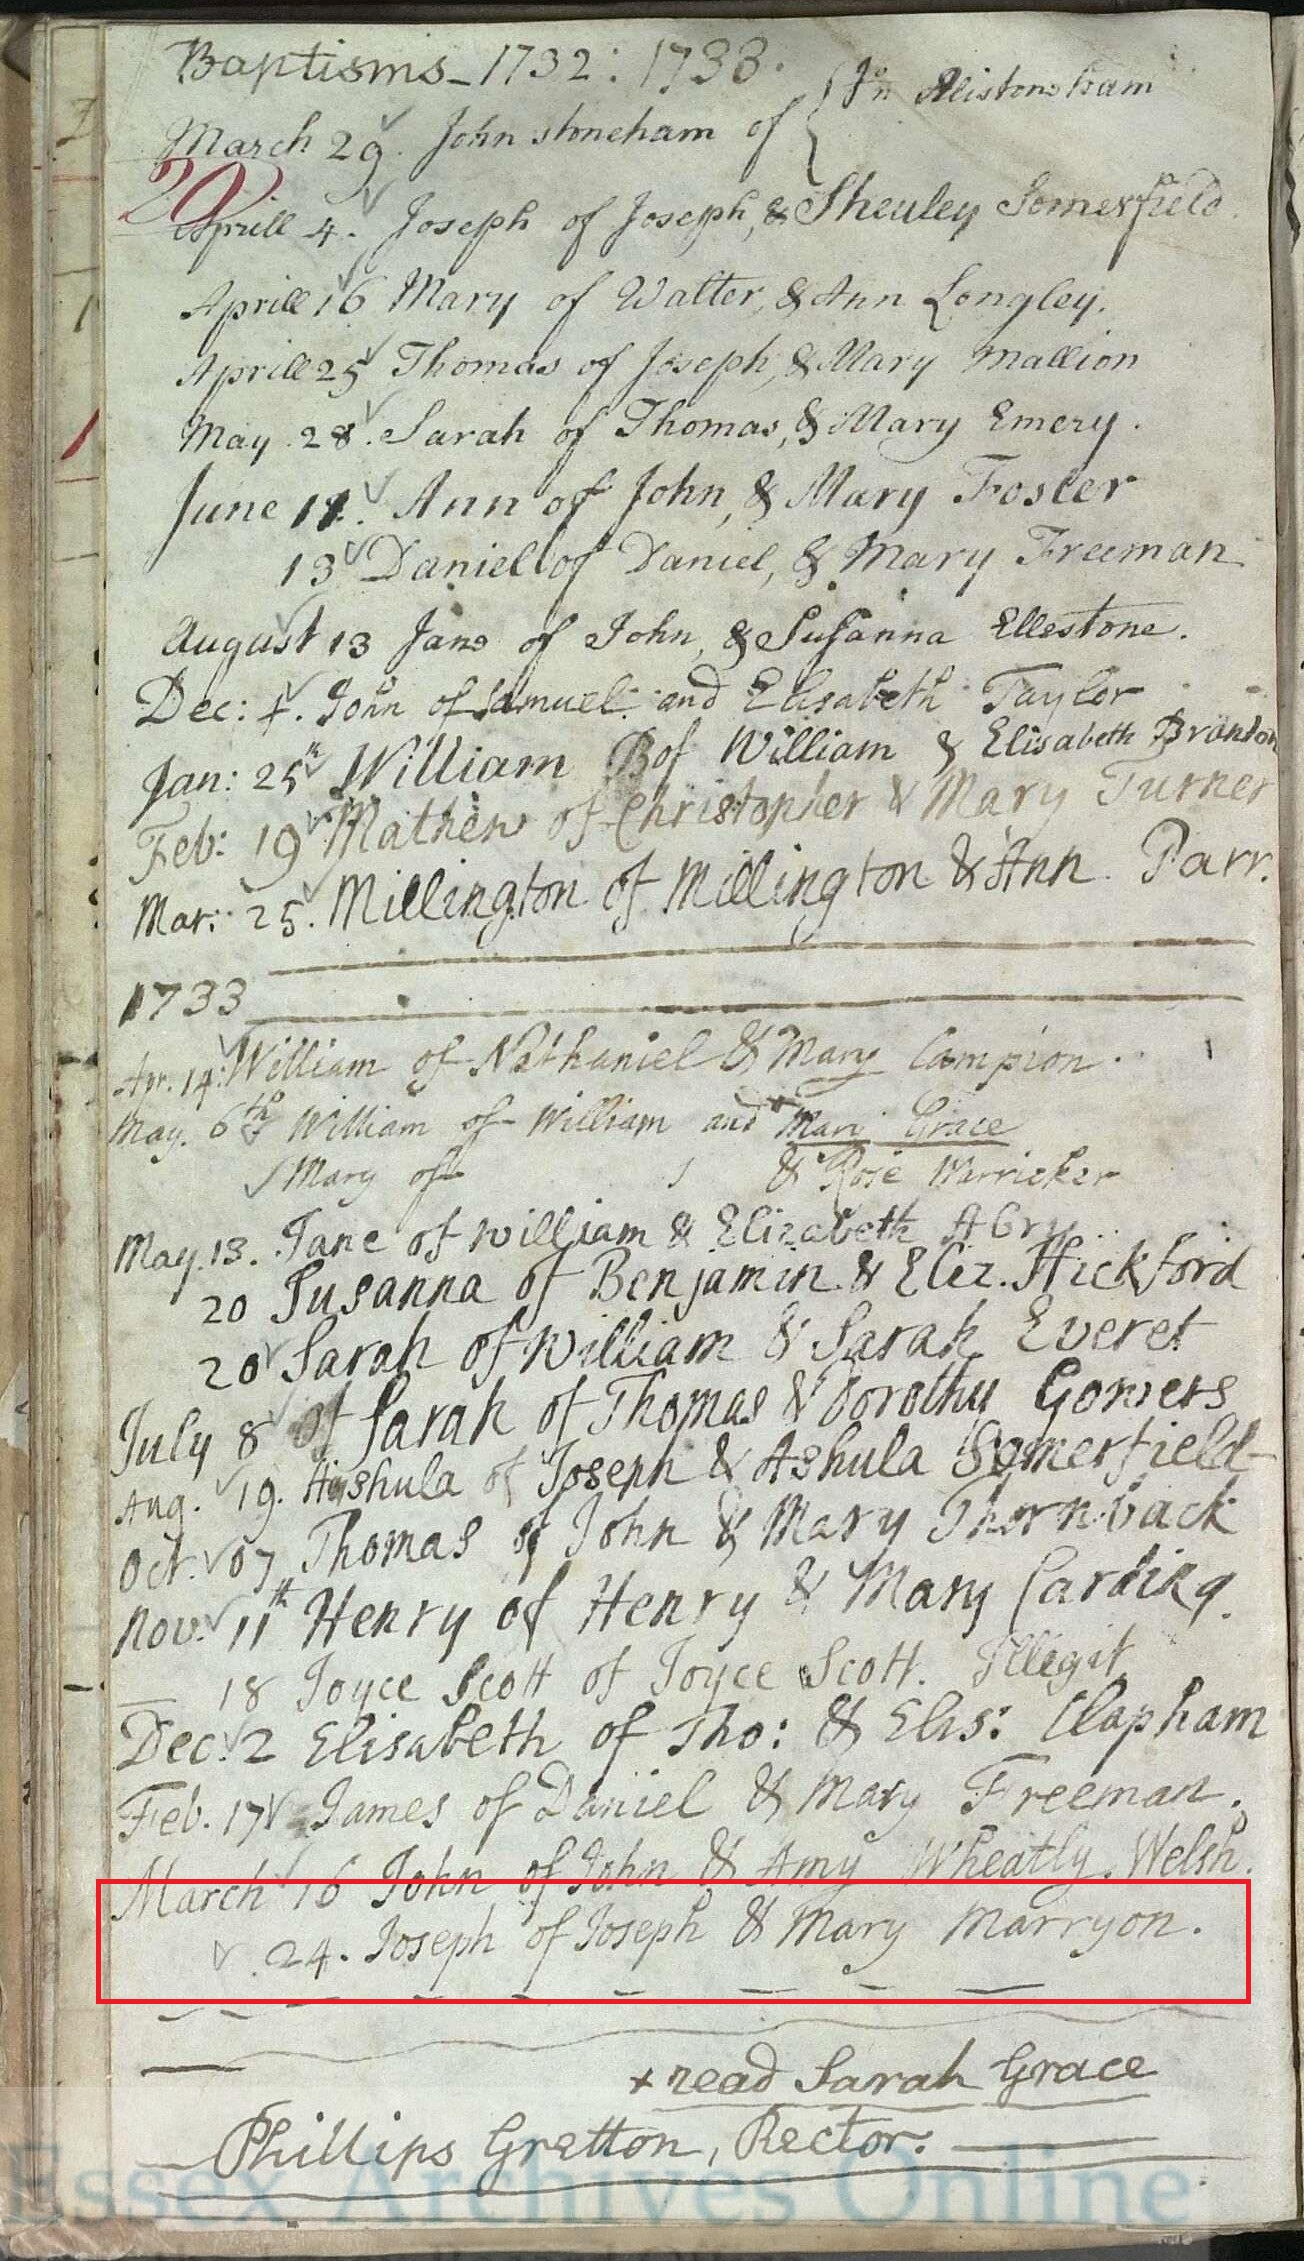 Baptisms - 1732 : 1733.
March 29. John stoneham of { In Alistonsham
20
Aprill 4. Joseph of Joseph, & Sheuley Somerfield
Aprill 16 Mary of Walter, & Ann Longley.
Aprill 25 Thomas of Joseph, & Mary Mallion
May 28. Sarah of Thomas, & Mary Emery.
June 11. Ann of John, & Mary Foster
13 Daniel of Daniel, & Mary Freeman
August 13 Jane of John, & Susanna Ellestone.
Dec: 1. John of Samuel and Elisabeth Taylor
Jan: 25th William B of William & Elisabeth Brandon
Feb: 19 Mathew of Christopher & Mary Turner
Mar: 25. Millington of Millington & Ann Parr.
1733
Apr. 14: William of Nathaniel & Mary Campion.
May. 6th William of William and Mary Grace
Mary of & Rose Warricker
May. 13. Jane of William & Elizabeth Abry
20 Susanna of Benjamin & Eliz. Hickford
20 Sarah of William & Sarah Everet
July 8 of Sarah of Thomas & Dorothy Gomers
Aug. 19. Hashula of Joseph & Ashula Somerfield
Oct. 07 Thomas of John & Mary Thornback
Nov. 11th Henry of Henry & Mary Carding.
18 Joyce Scott of Joyce Scott. Illegit
Dec. 2 Elisabeth of Tho: & Elis: Clapham
Feb. 17 James of Daniel & Mary Freeman.
March 16 John of John & Amy Wheatly. Welsh.
24. Joseph of Joseph & Mary Marryon.
+ read Sarah Grace
Phillips Gretton, Rector.
Essex Archives Online